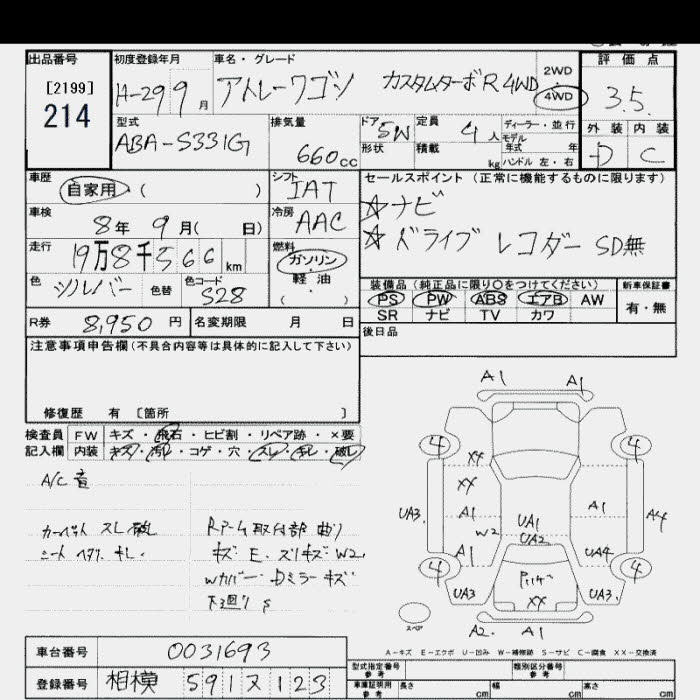 出品番号
[2199]
214
初度登録年月
H-29 9月
車名・グレード
アトレーワゴン カスタムターボR 4WD
2WD
4WD
評価点
3.5
外装 内装
D C
型式
ABA-S331G
排気量
660cc
ドア 5W
形状
定員 4人
積載 kg
ディーラー・並行
モデル
年式 年
ハンドル 左・右
車歴
自家用 ( )
シフト
IAT
セールスポイント (正常に機能するものに限ります)
☆ナビ
☆ドライブレコーダー SD無
車検
8年 9月( 日)
冷房
AAC
走行
19万8千566km
燃料
ガソリン
・
軽油
・
( )
色
シルバー
色替
色コード
S28
装備品 (純正品に限り〇をつけてください)
PS PW ABS エアB AW
SR ナビ TV カワ
新車保証書
有・無
R券 8,950円
名変期限 月 日
後日品
注意事項申告欄(不具合内容等は具体的に記入して下さい)
修復歴 有 [箇所 ]
検査員
記入欄
FW キズ・飛石・ヒビ割・リペア跡・×要
内装 キズ・汚レ・コゲ・穴・スレ・キレ・破レ
A/C 音
カーペット スレ 破レ
シート ヘタリ キレ
Rアーム取付部 曲り
キズ E. スリキズ W2
Wカバー・Dミラー キズ
下廻り S
A1 A1
4 4
XX
XX
UA3. A1 A1 A4
W2 UA1
UA2
A1 UA4
4 4
UA3 UA3.
XX
スペア
A2. A1
A-キズ E-エクボ U-凹み W-補修跡 S-サビ C-腐食 XX-交換済
車台番号 0031693
登録番号 相模 591 ヌ 123
型式指定番号
参考
類別区分番号
参考
車庫証明用
参考
長さ cm 幅 cm 高さ cm